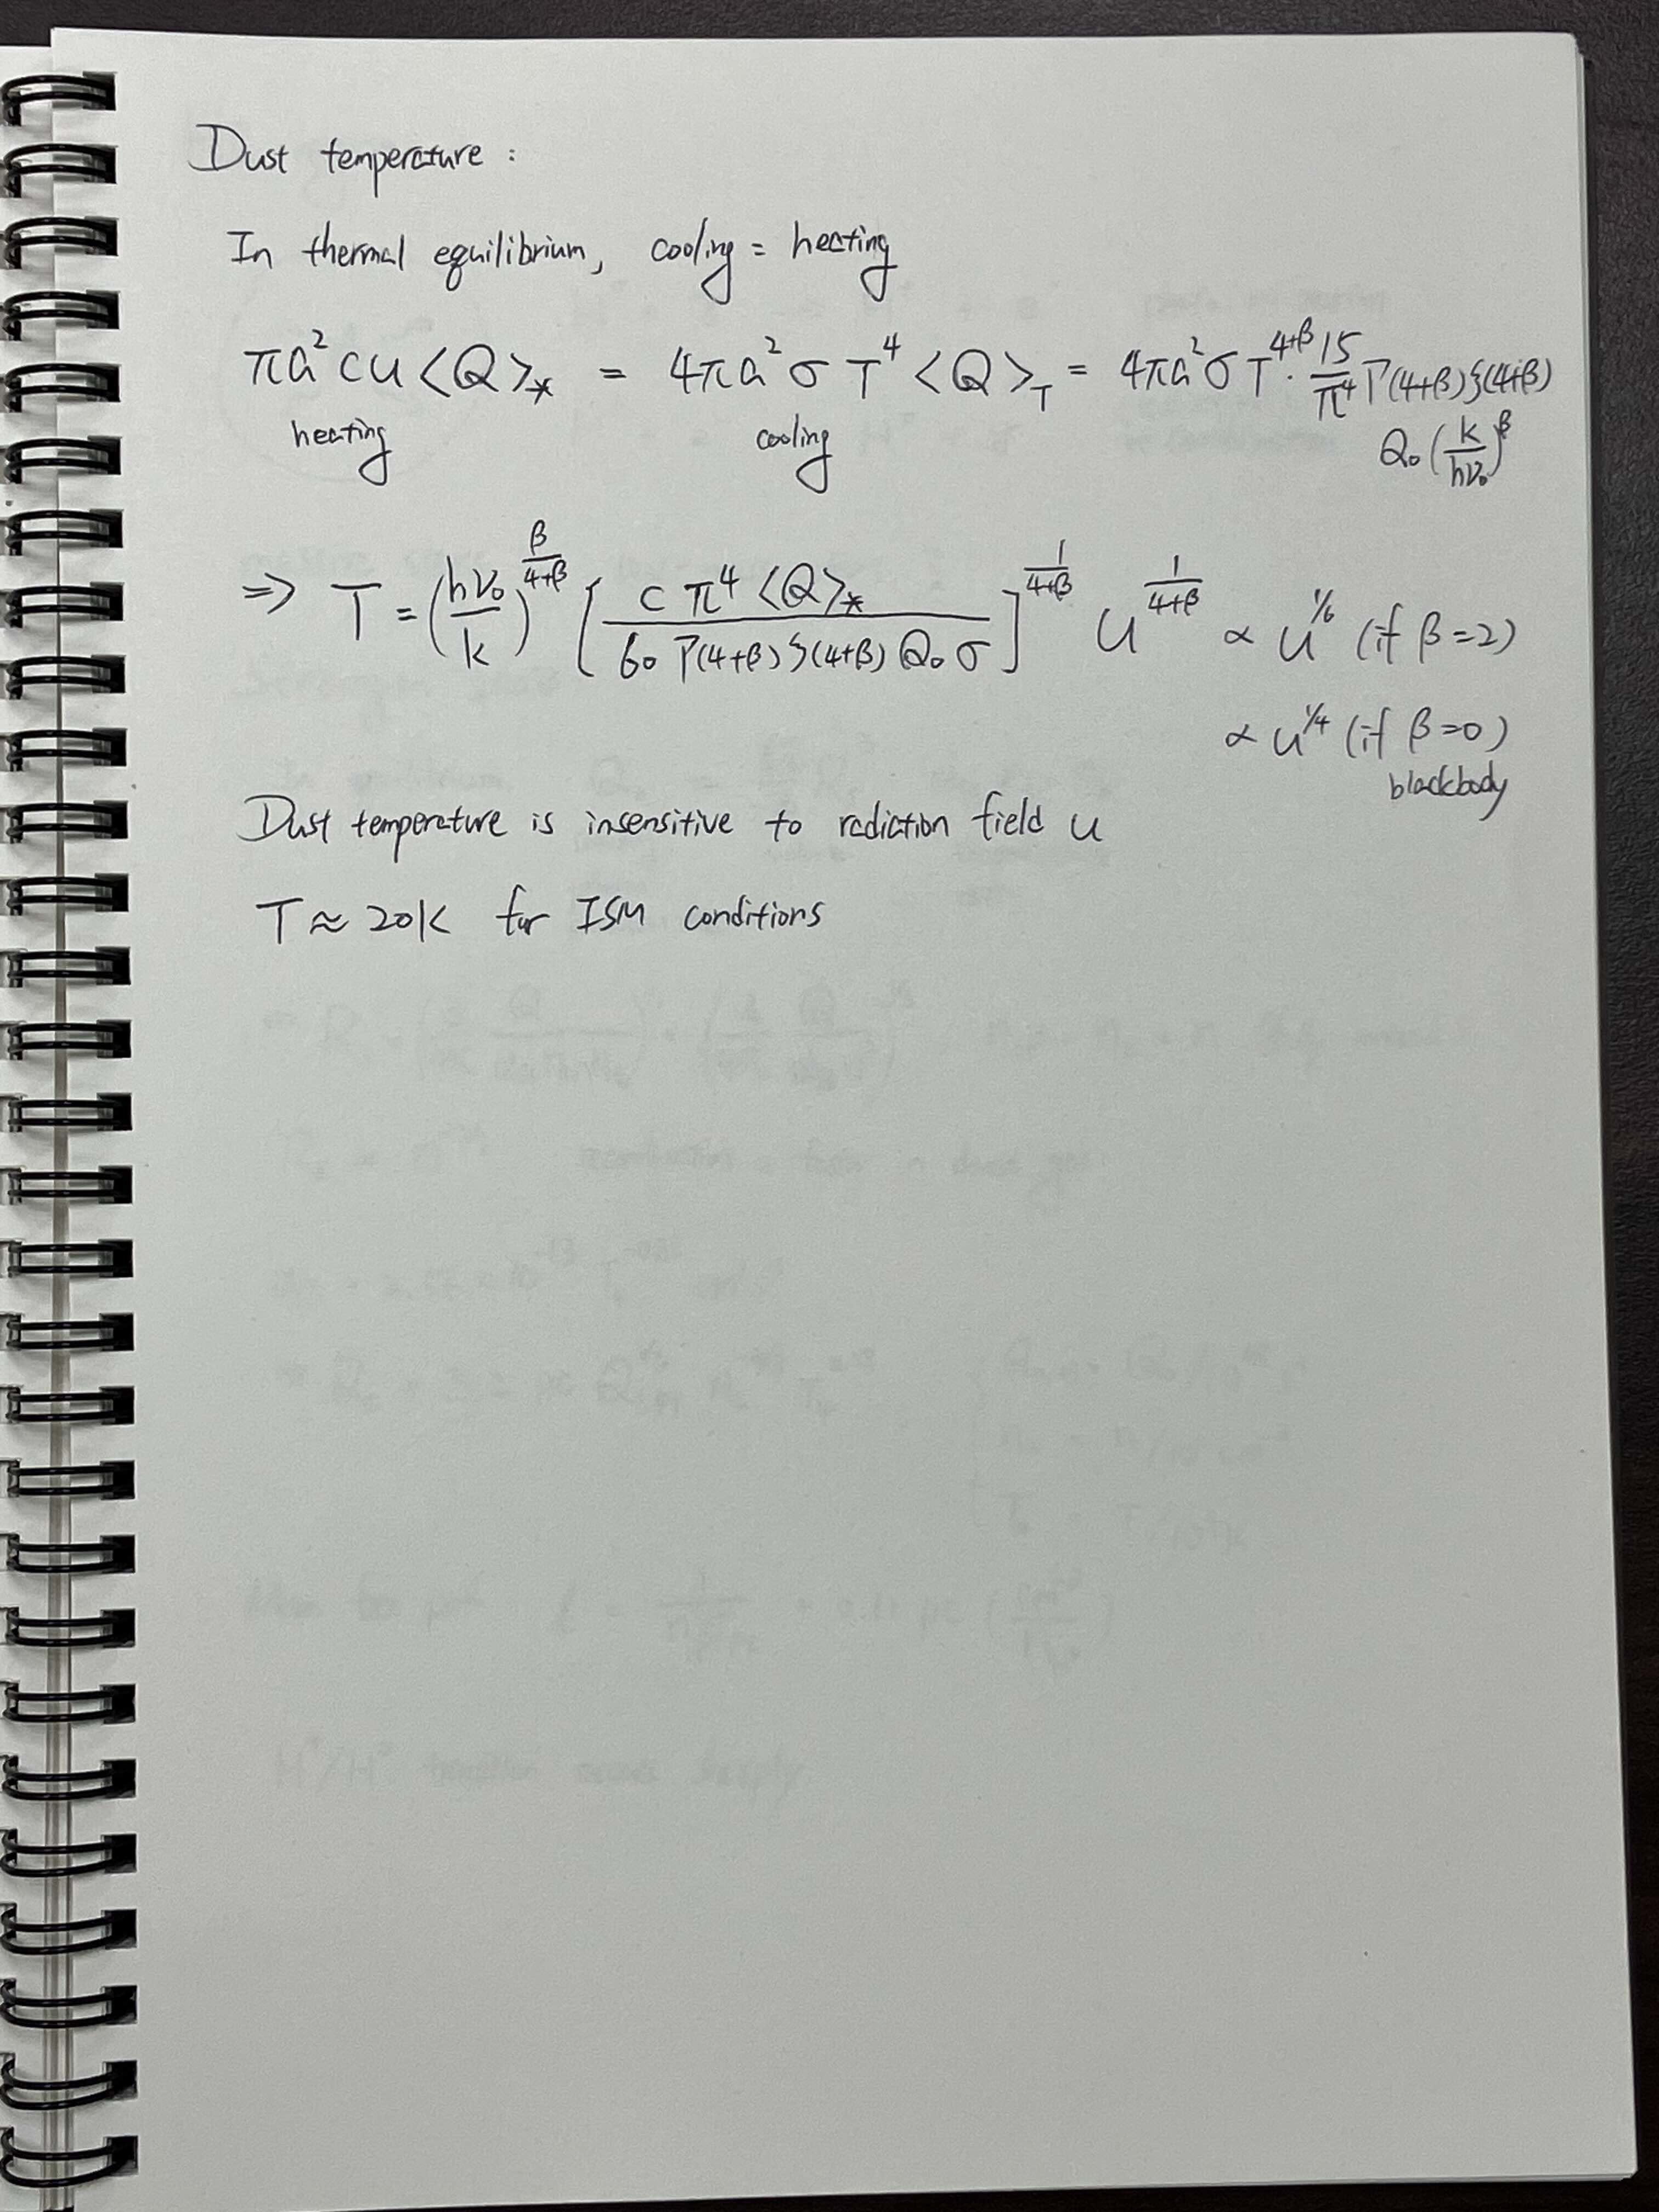 Dust temperature :
In thermal equilibrium, cooling = heating
πa² c u <Q>⁎ = 4πa² σ T⁴ <Q>_T = 4πa² σ T^(4+β) · 15/π⁴ Γ(4+β) ζ(4+β)
heating cooling Q₀ (k/hν₀)^β
⇒ T = (hν₀/k)^(β/(4+β)) [c π⁴ <Q>⁎ / 60 Γ(4+β) ζ(4+β) Q₀ σ]^(1/(4+β)) u^(1/(4+β)) ∝ u^(1/6) (if β=2)
∝ u^(1/4) (if β=0)
blackbody
Dust temperature is insensitive to radiation field u
T ≈ 20K for ISM conditions